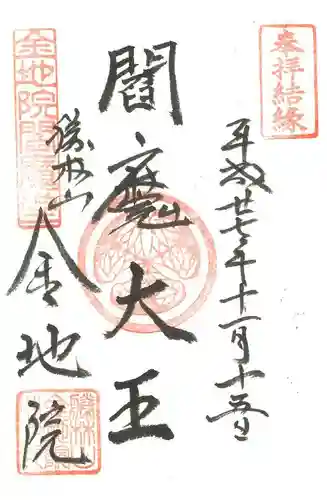 奉拝結縁
平成廿七年十一月十五日
閻魔大王
勝林山
金地院
金地院閻魔